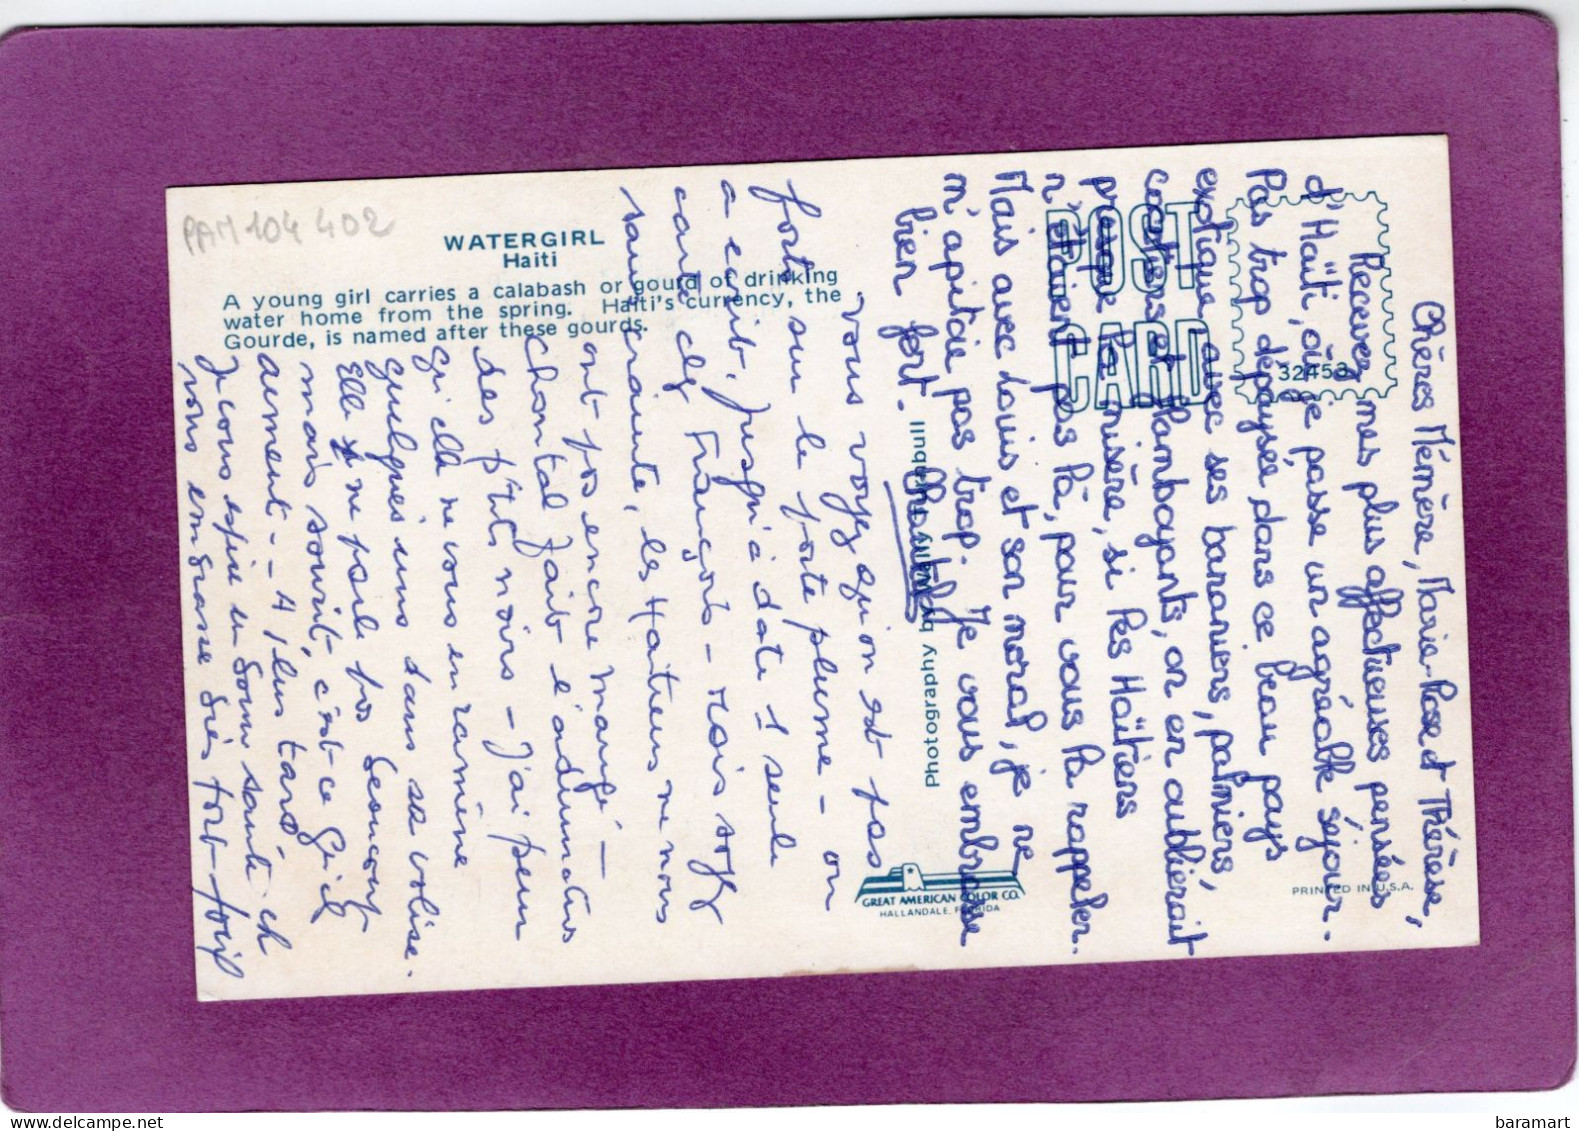 PAM 104 402
WATERGIRL
Haiti
A young girl carries a calabash or gourd of drinking
water home from the spring. Haiti's currency, the
Gourde, is named after these gourds.
POST
CARD
32453
Photography by Wally Trabull
GREAT AMERICAN COLOR CO.
HALLANDALE, FLORIDA
PRINTED IN U.S.A.
Chères Mémère, Marie-Rose et Thérèse,
Recevez mes plus affectueuses pensées
d'Haïti, où je passe un agréable séjour.
Pas trop dépaysée dans ce beau pays
exotique, avec ses bananiers, palmiers,
cocotiers et flamboyants, on en oublierait
presque la misère, si les Haïtiens
n'étaient pas là, pour vous la rappeler.
Mais avec Louis et son moral, je ne
m'apitoie pas trop. Je vous embrasse
bien fort. Chantal
vous voyez qu'on est pas
forts sur le porte plume - on
a écrit, jusqu'à date 1 seule
carte chez François - mais soyez
sans crainte, les Haïtiens ne nous
ont pas encore mangé -
Chantal fait l'admiration
des p'tits noirs - J'ai peur
qu'elle ne vous en ramène
quelques uns dans sa valise.
Elle ne parle pas beaucoup
mais sourit, c'est ce qu'il
aiment - - A plus tard
Je vous espère en bonne santé et
vous embrasse très fort - Louis
baramart